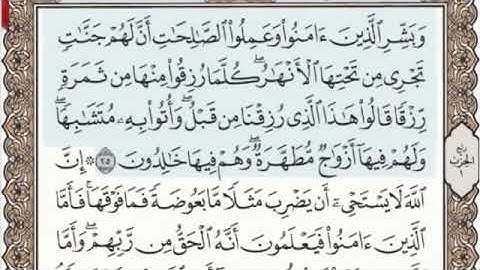 وَبَشِّرِ ٱلَّذِينَ ءَامَنُوا۟ وَعَمِلُوا۟ ٱلصَّـٰلِحَـٰتِ أَنَّ لَهُمْ جَنَّـٰتٍ
تَجْرِى مِن تَحْتِهَا ٱلْأَنْهَـٰرُ ۖ كُلَّمَا رُزِقُوا۟ مِنْهَا مِن ثَمَرَةٍ
رِّزْقًا قَالُوا۟ هَـٰذَا ٱلَّذِى رُزِقْنَا مِن قَبْلُ ۖ وَأُتُوا۟ بِهِۦ مُتَشَـٰبِهًا ۖ
وَلَهُمْ فِيهَآ أَزْوَٰجٌ مُّطَهَّرَةٌ ۖ وَهُمْ فِيهَا خَـٰلِدُونَ ٢٥ ۞ إِنَّ
ٱللَّهَ لَا يَسْتَحْىِۦٓ أَن يَضْرِبَ مَثَلًا مَّا بَعُوضَةً فَمَا فَوْقَهَا ۚ فَأَمَّا
ٱلَّذِينَ ءَامَنُوا۟ فَيَعْلَمُونَ أَنَّهُ ٱلْحَقُّ مِن رَّبِّهِمْ ۖ وَأَمَّا
ربع
الحزب